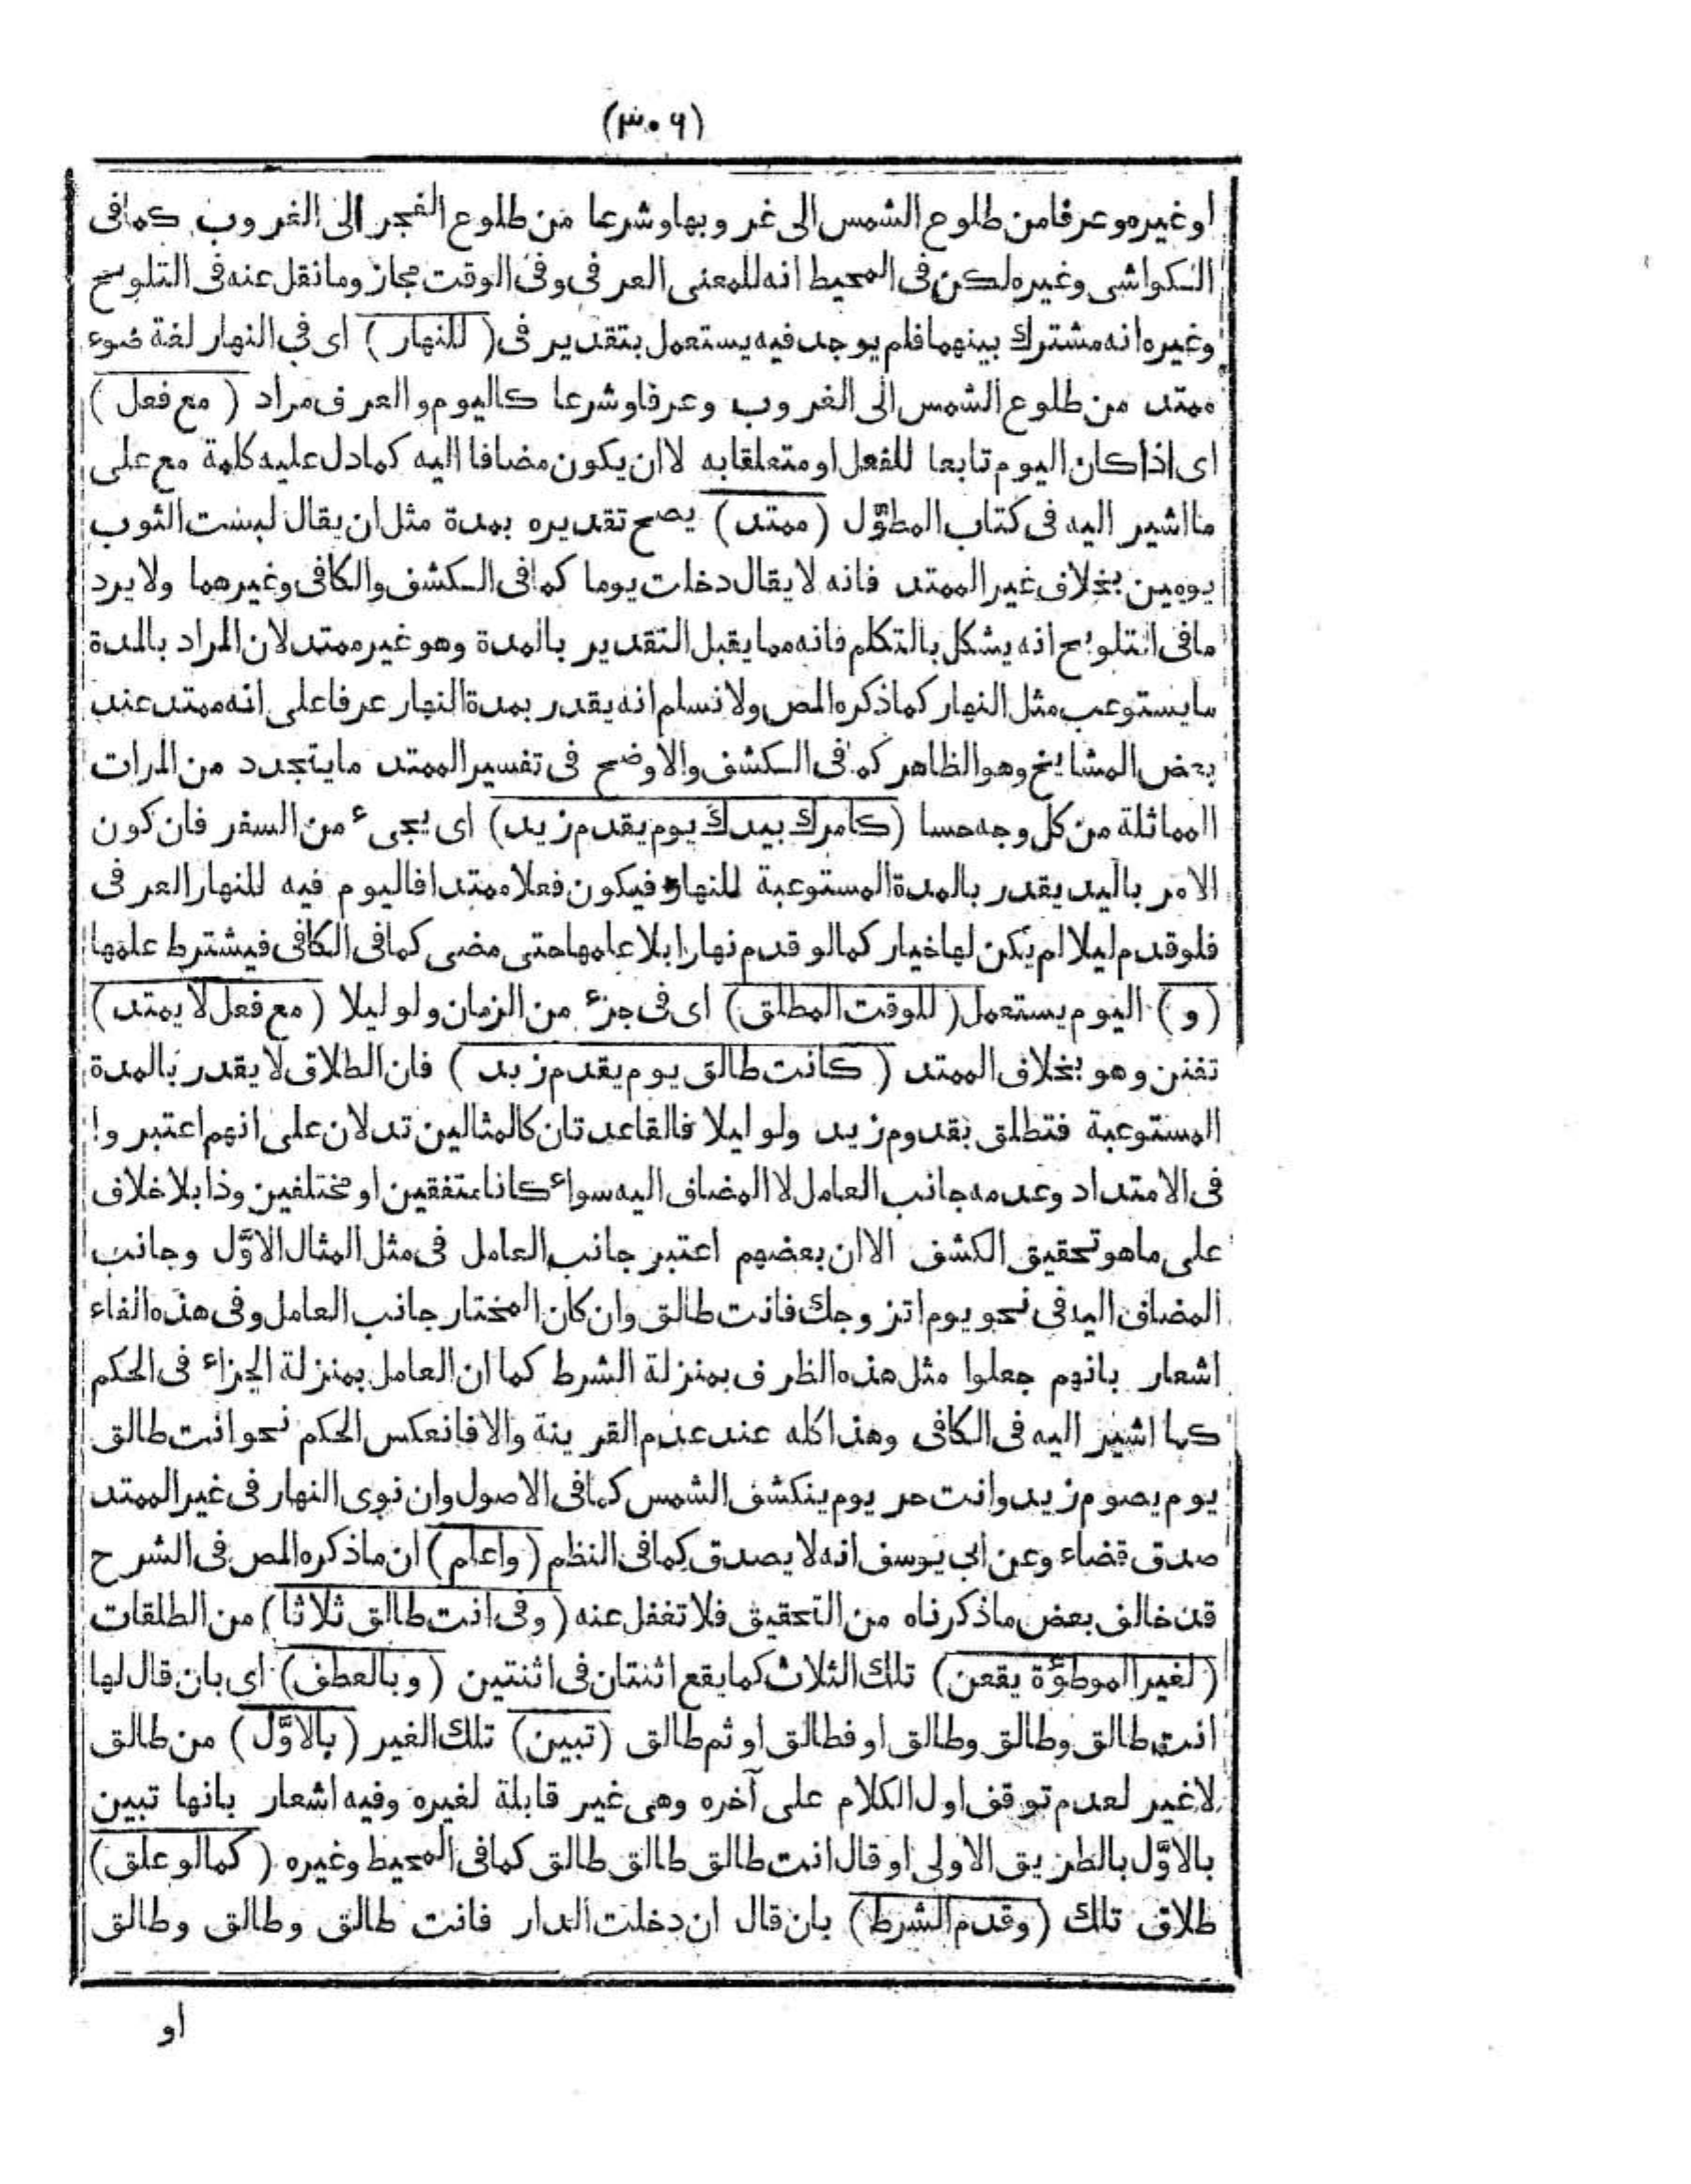 (٣٠٦)
او غيره وعرفا من طلوع الشمس الى غروبها وشرعا من طلوع الفجر الى الغروب كما فى
الكواشى وغيره لكن فى المحيط انه للمعنى العرفى وفى الوقت مجاز وما نقل عنه فى التلويح
وغيره انه مشترك بينهما فلم يوجد فيه يستعمل بتقدير فى (للنهار) اى فى النهار لغة ضوء
ممتد من طلوع الشمس الى الغروب وعرفا وشرعا كاليوم والعرف مراد (مع فعل)
اى اذا كان اليوم تابعا للفعل او متعلقا به لا ان يكون مضافا اليه كما دل عليه كلمة مع على
ما اشير اليه فى كتاب المطوّل (ممتد) يصح تقديره بمدة مثل ان يقال لبست الثوب
يومين بخلاف غير الممتد فانه لا يقال دخلت يوما كما فى الكشف والكافى وغيرهما ولا يرد
ما فى التلويح انه يشكل بالتكلم فانه مما يقبل التقدير بالمدة وهو غير ممتد لان المراد بالمدة
ما يستوعب مثل النهار كما ذكره المص ولا نسلم انه يقدر بمدة النهار عرفا على انه ممتد عند
بعض المشايخ وهو الظاهر كما فى الكشف والاوضح فى تفسير الممتد ما يتجدد من المرات
المماثلة من كل وجه حسا (كامرك بيدك يوم يقدم زيد) اى يجىء من السفر فان كون
الامر باليد يقدر بالمدة المستوعبة للنهار فيكون فعلا ممتدا فاليوم فيه للنهار العرفى
فلو قدم ليلا لم يكن لها خيار كما لو قدم نهارا بلا علمها حتى مضى كما فى الكافى فيشترط علمها
(و) اليوم يستعمل (للوقت المطلق) اى فى جزء من الزمان ولو ليلا (مع فعل لا يمتد)
تفنن وهو بخلاف الممتد (كانت طالق يوم يقدم زيد) فان الطلاق لا يقدر بالمدة
المستوعبة فتطلق بقدوم زيد ولو ليلا فالقاعدتان كالمثالين تدلان على انهم اعتبروا
فى الامتداد وعدمه جانب العامل لا المضاف اليه سواء كانا متفقين او مختلفين وذا بلا خلاف
على ما هو تحقيق الكشف الا ان بعضهم اعتبر جانب العامل فى مثل المثال الاوّل وجانب
المضاف اليه فى نحو يوم اتزوجك فانت طالق وان كان المختار جانب العامل وفى هذه الفاء
اشعار بانهم جعلوا مثل هذه الظرف بمنزلة الشرط كما ان العامل بمنزلة الجزاء فى الحكم
كما اشير اليه فى الكافى وهذا كله عند عدم القرينة والا فانعكس الحكم نحو انت طالق
يوم يصوم زيد وانت حر يوم ينكشف الشمس كما فى الاصول وان نوى النهار فى غير الممتد
صدق قضاء وعن ابى يوسف انه لا يصدق كما فى النظم (واعلم) ان ما ذكره المص فى الشرح
قد خالف بعض ما ذكرناه من التحقيق فلا تغفل عنه (وفى انت طالق ثلاثا) من الطلقات
(لغير الموطؤة يقعن) تلك الثلاث كما يقع اثنتان فى اثنتين (وبالعطف) اى بان قال لها
انت طالق وطالق وطالق او فطالق او ثم طالق (تبين) تلك الغير (بالاوّل) من طالق
لا غير لعدم توقف اول الكلام على آخره وهى غير قابلة لغيره وفيه اشعار بانها تبين
بالاوّل بالطريق الاولى او قال انت طالق طالق طالق كما فى المحيط وغيره (كما لو علق)
طلاق تلك (وقدم الشرط) بان قال ان دخلت الدار فانت طالق وطالق وطالق
او